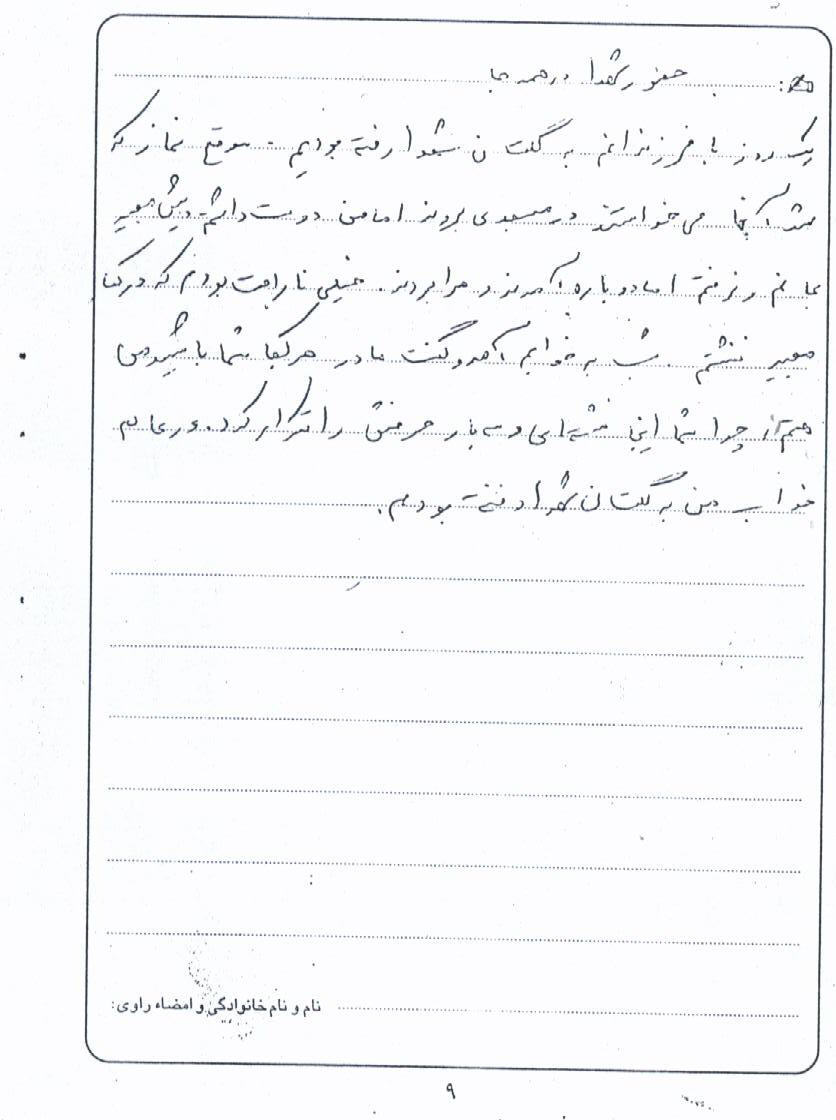 حضور شهدا در همه جا
یک روز با فرزندانم به گلستان شهدا رفته بودیم. موقع نماز که
شد آنها می خواستند در مسجدی بروند اما من دوست داشتم پیش مجید
بمانم و نرفتم اما دوباره آمدند و مرا بردند. خیلی ناراحت بودم که در کنار
مجید ننشتم. شب به خوابم آمد و گفت مادر هر کجا شما باشید من
هم آنجا چرا شما اینجا نشسته ای و سه بار حرفش را تکرار کرد. در عالم
خواب من به گلستان شهدا رفته بودم.
نام و نام خانوادگی و امضاء راوی:
۹